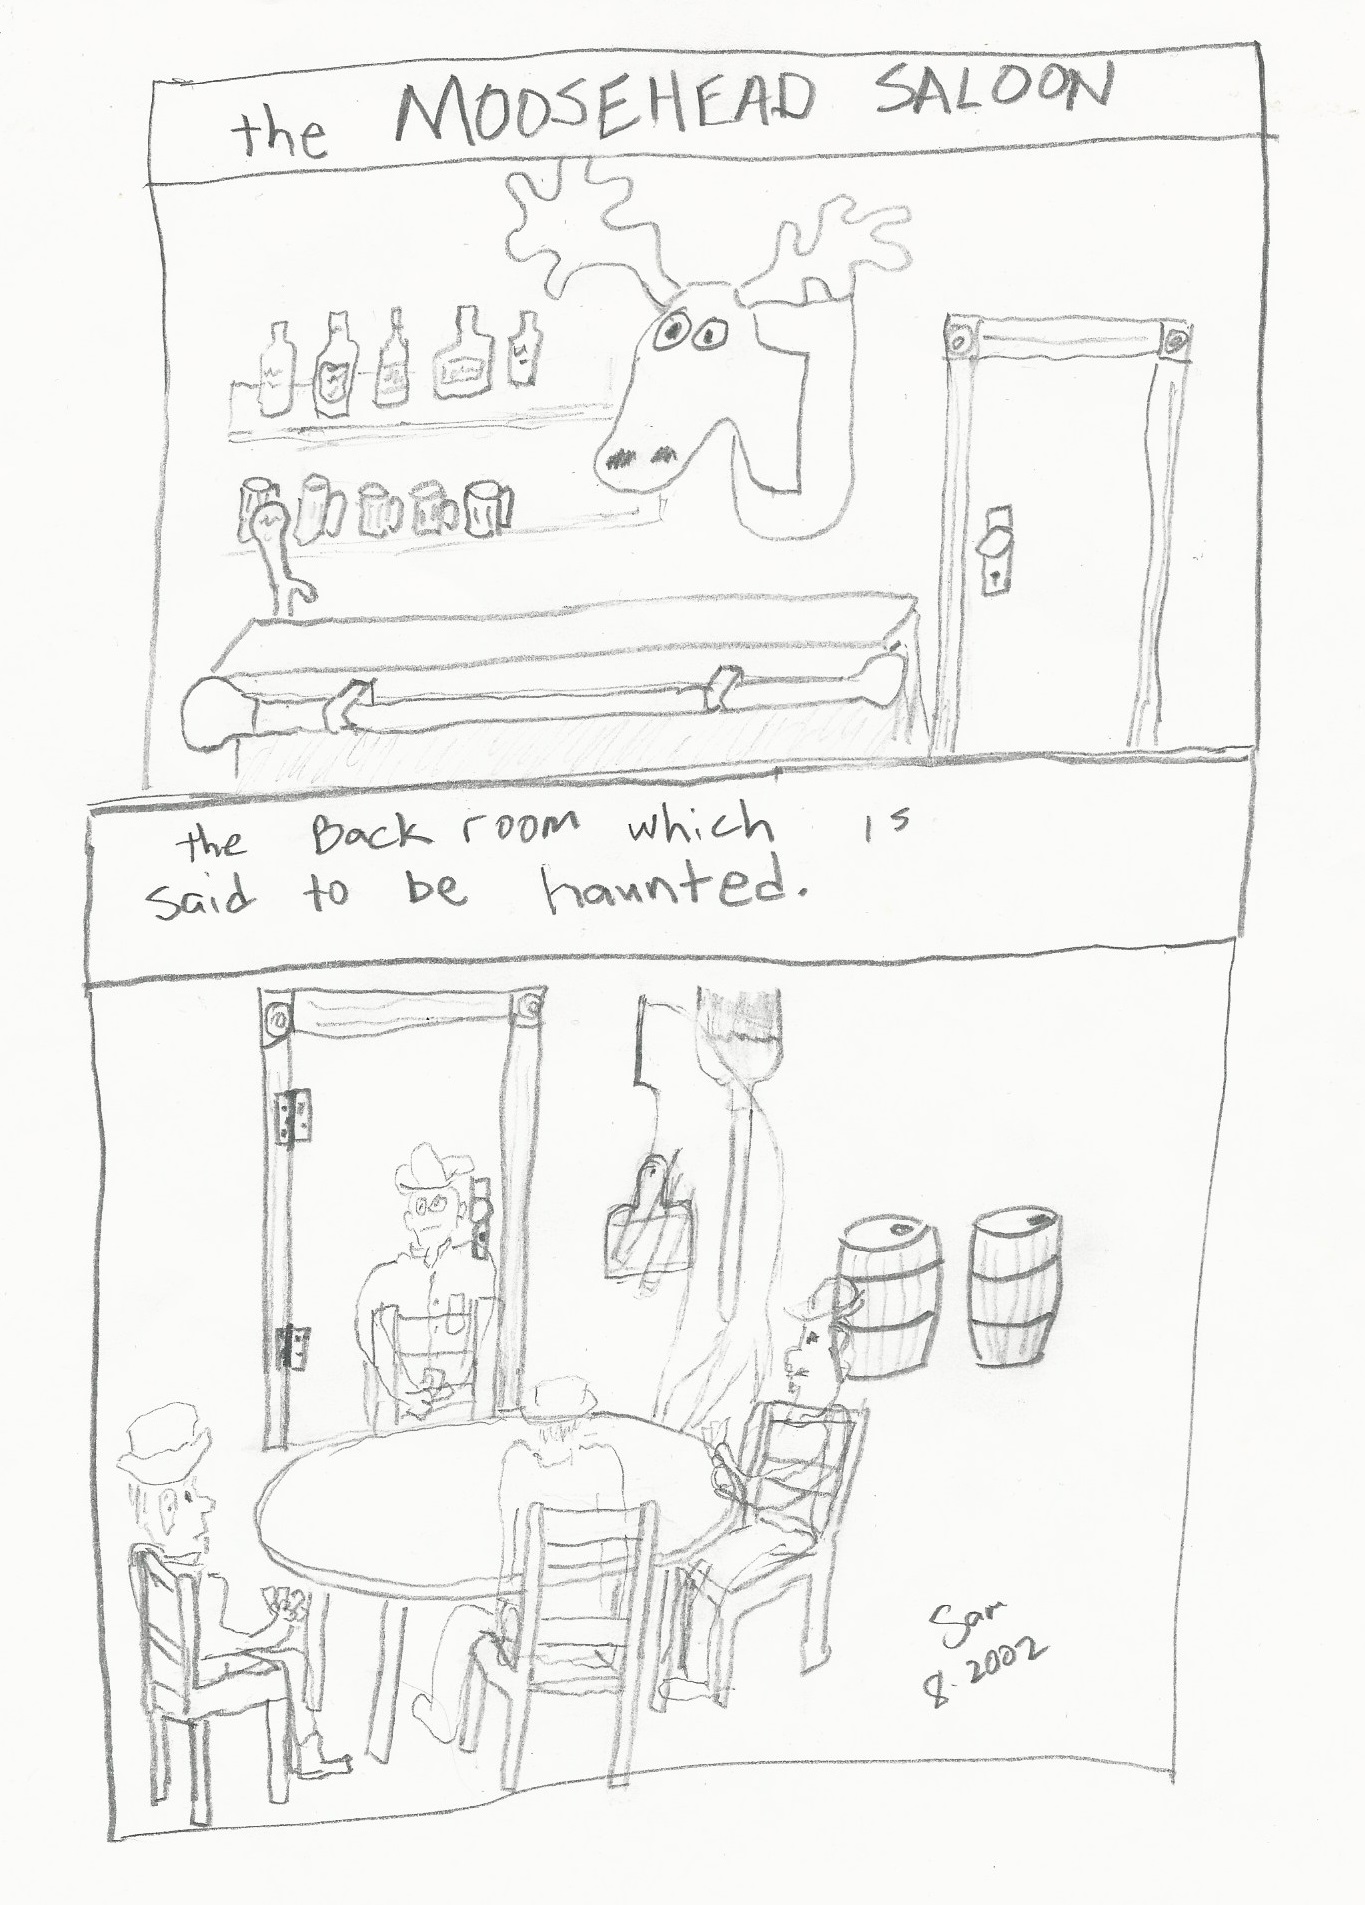 the MOOSEHEAD SALOON
the Back room which is
said to be haunted.
Sam
8.2002